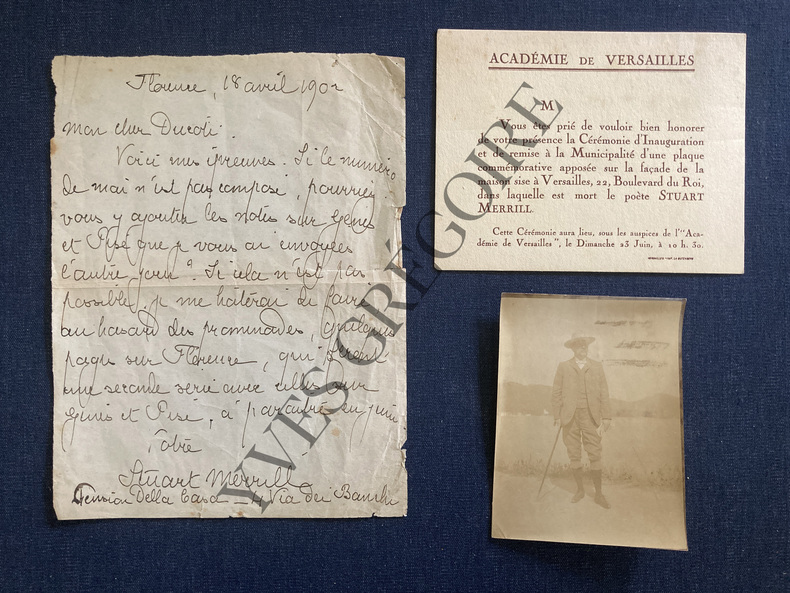 Florence, 18 avril 1902
Mon cher Ducoté.
Voici mes épreuves. Si le numéro
de mai n'est pas composé, pourriez
vous y ajouter les notes sur Gênes
et Pise que je vous ai envoyées
l'autre jour? Si cela n'est pas
possible, je me hâterai de faire
au hasard des promenades, quelques
pages sur Florence, qui seront
une seconde série avec celles sur
Gênes et Pise, à paraître en juin
Votre
Stuart Merrill
Pension Della Casa - 4 Via dei Banchi
ACADÉMIE DE VERSAILLES
M
Vous êtes prié de vouloir bien honorer
de votre présence la Cérémonie d'Inauguration
et de remise à la Municipalité d'une plaque
commémorative apposée sur la façade de la
maison sise à Versailles, 22, Boulevard du Roi,
dans laquelle est mort le poète STUART
MERRILL.
Cette Cérémonie aura lieu, sous les auspices de l'"Aca-
démie de Versailles", le Dimanche 23 Juin, à 10 h. 30.
YVES GRÉGOIRE